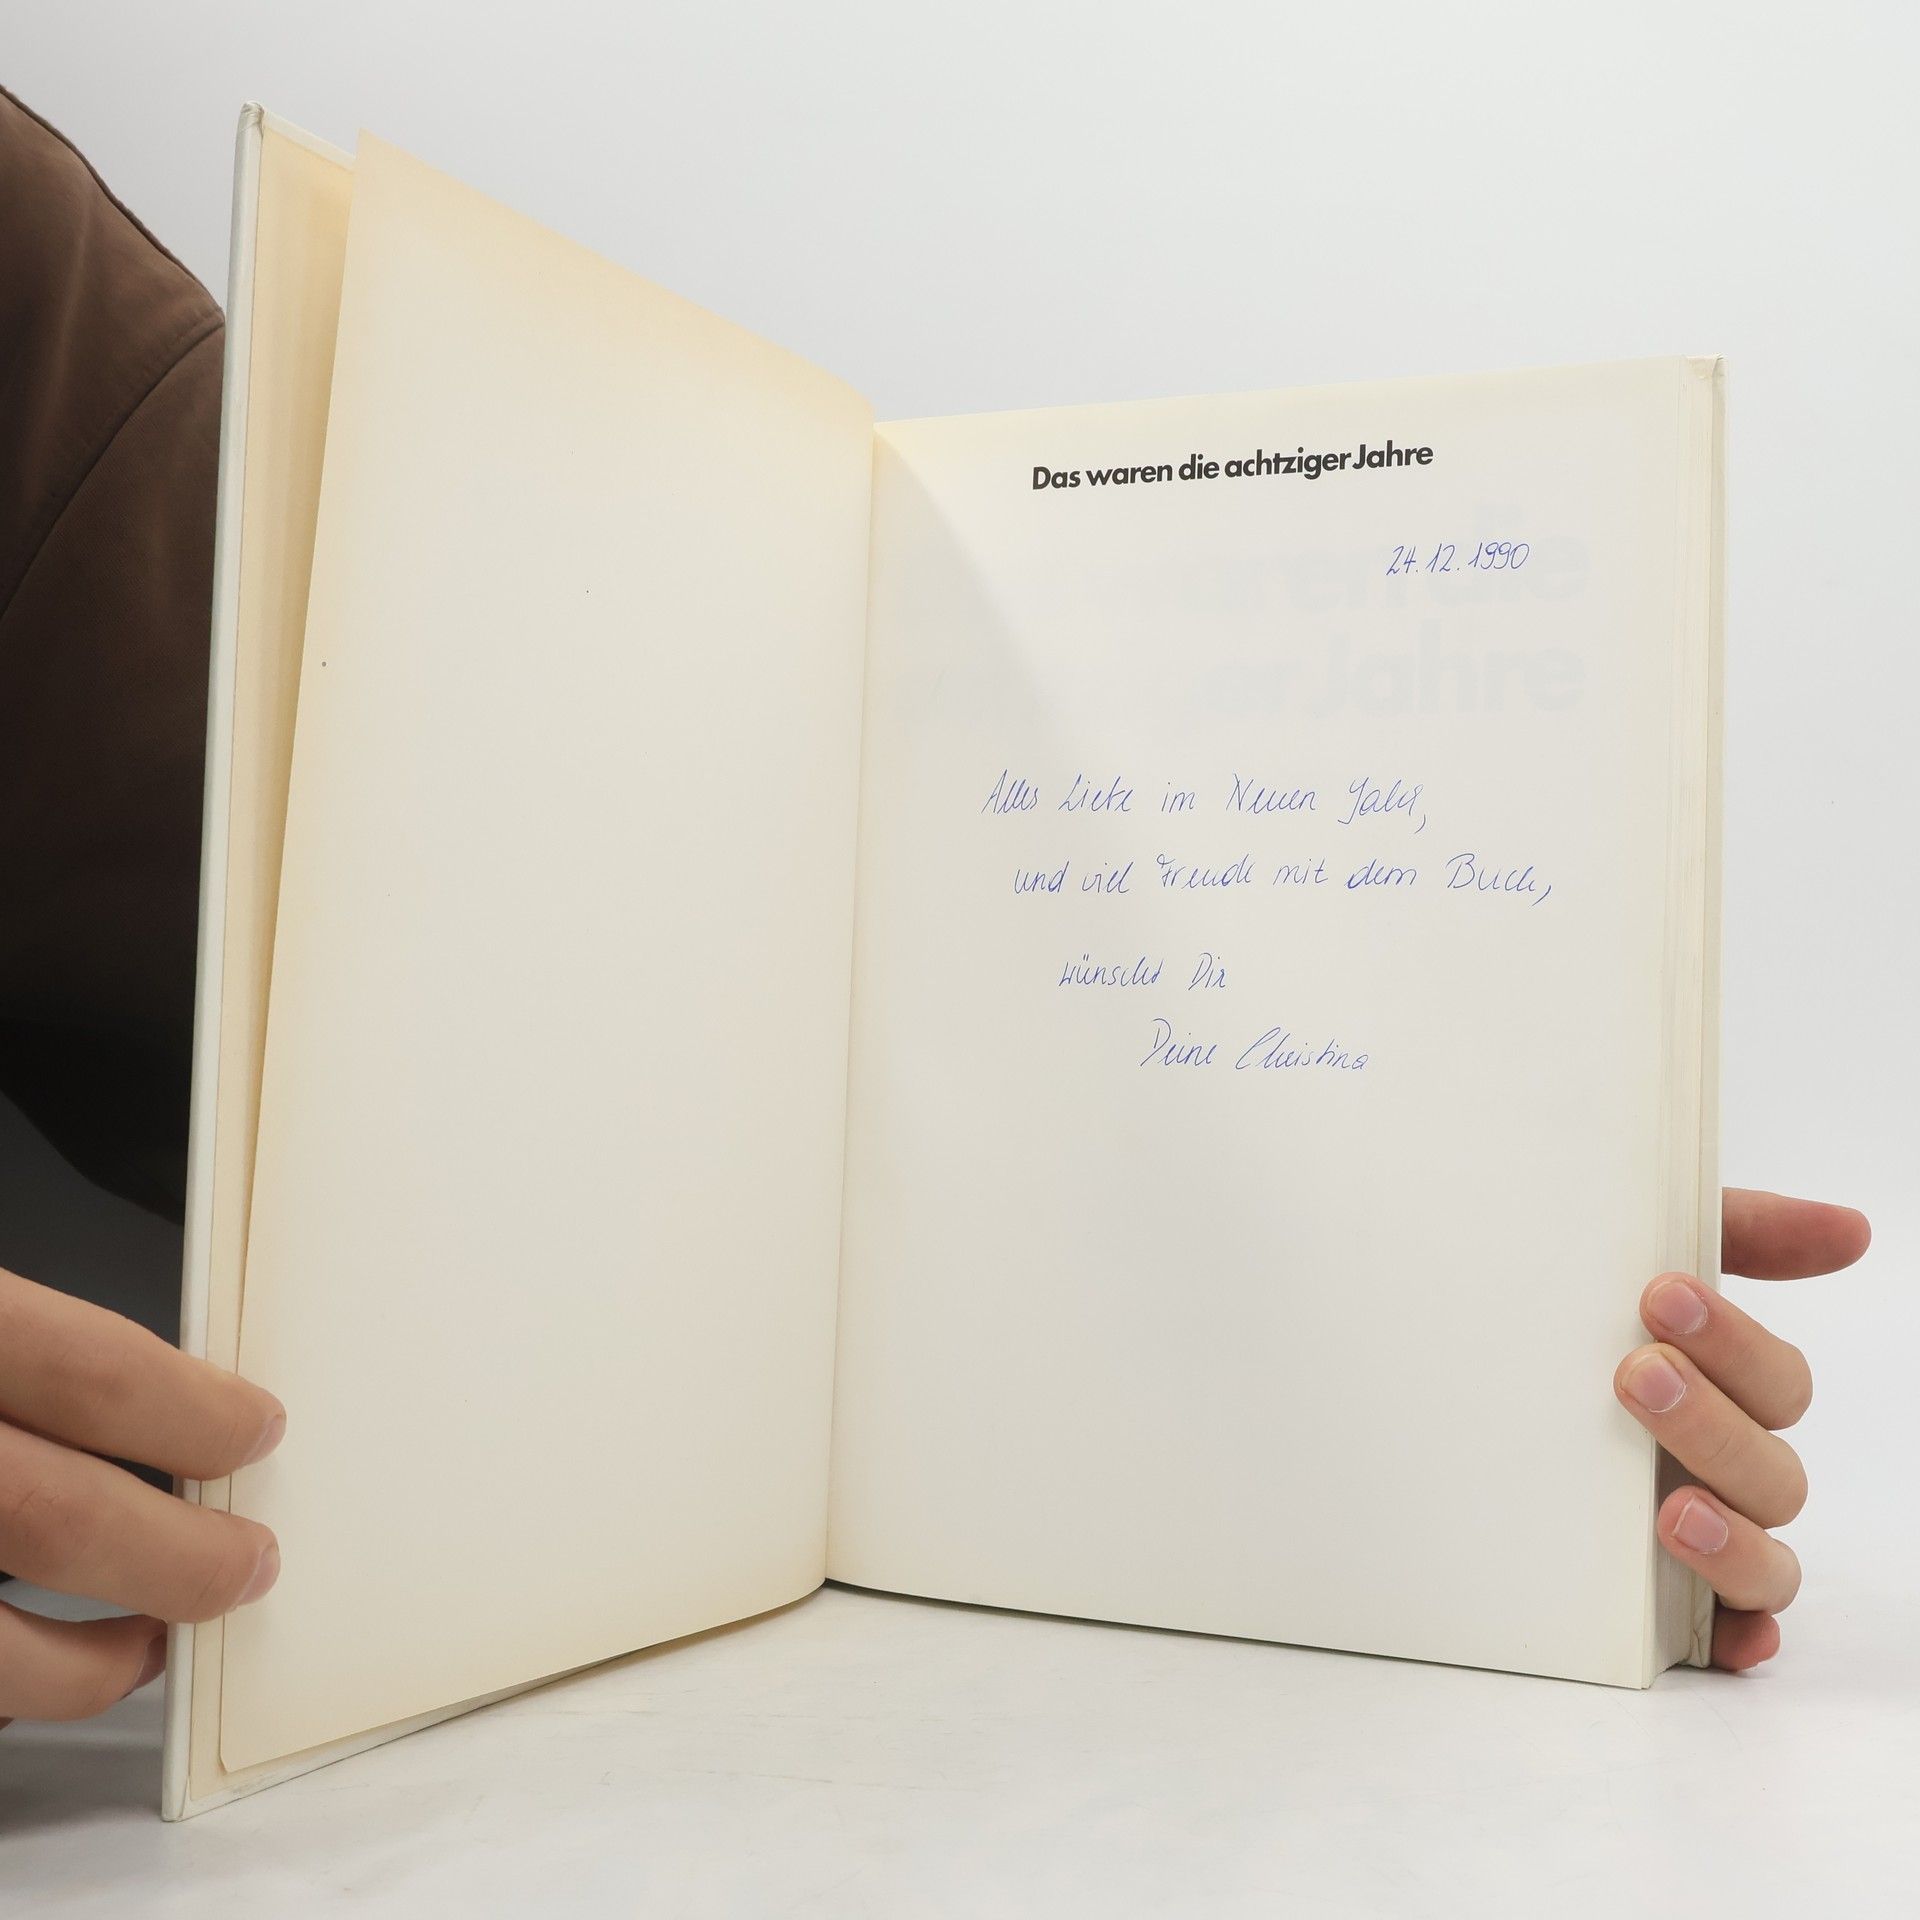 Das waren die achtziger Jahre
24.12.1990
Alles Liebe im Neuen Jahr,
und viel Freude mit dem Buch,
wünscht Dir
Deine Christina